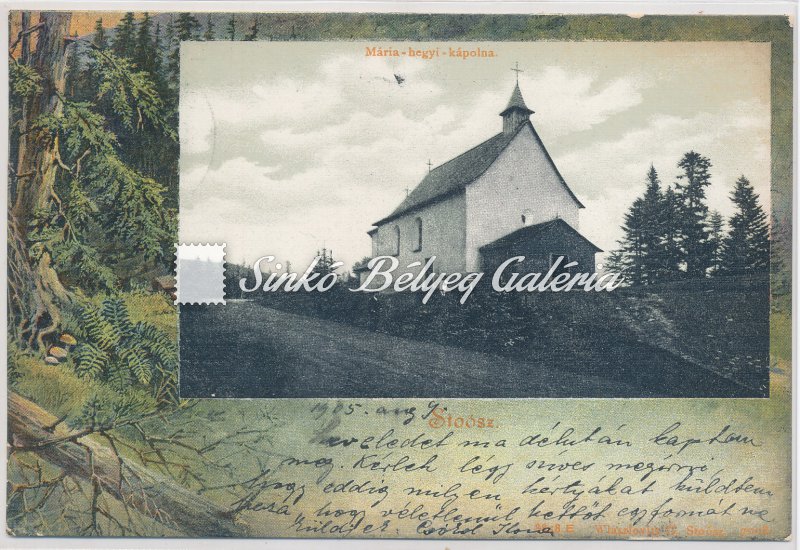 Mária-hegyi-kápolna.
Sinkó Bélyeg Galéria
Stoósz.
1905. aug 9.
Leveledet ma délután kaptam
meg. Kérlek légy szives megirni,
hogy eddig milyen kártyákat küldtem
hozzá, hogy véletlenül kettőt egyformát ne
küldjek. Ilona